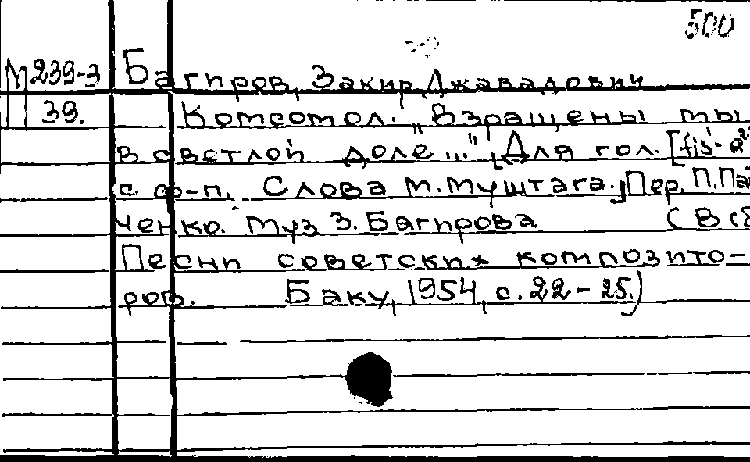 500
М239-3 Багиров, Закир Джавадович
39. Комсомол. „Взращены мы
в светлой доле..." [Для гол. [fis¹-a²]
с ф-п. Слова М. Муштага. Пер. П. Пан
ченко. Муз З. Багирова (В сб
Песни советских композито-
ров. Баку, 1954, с. 22-25.)